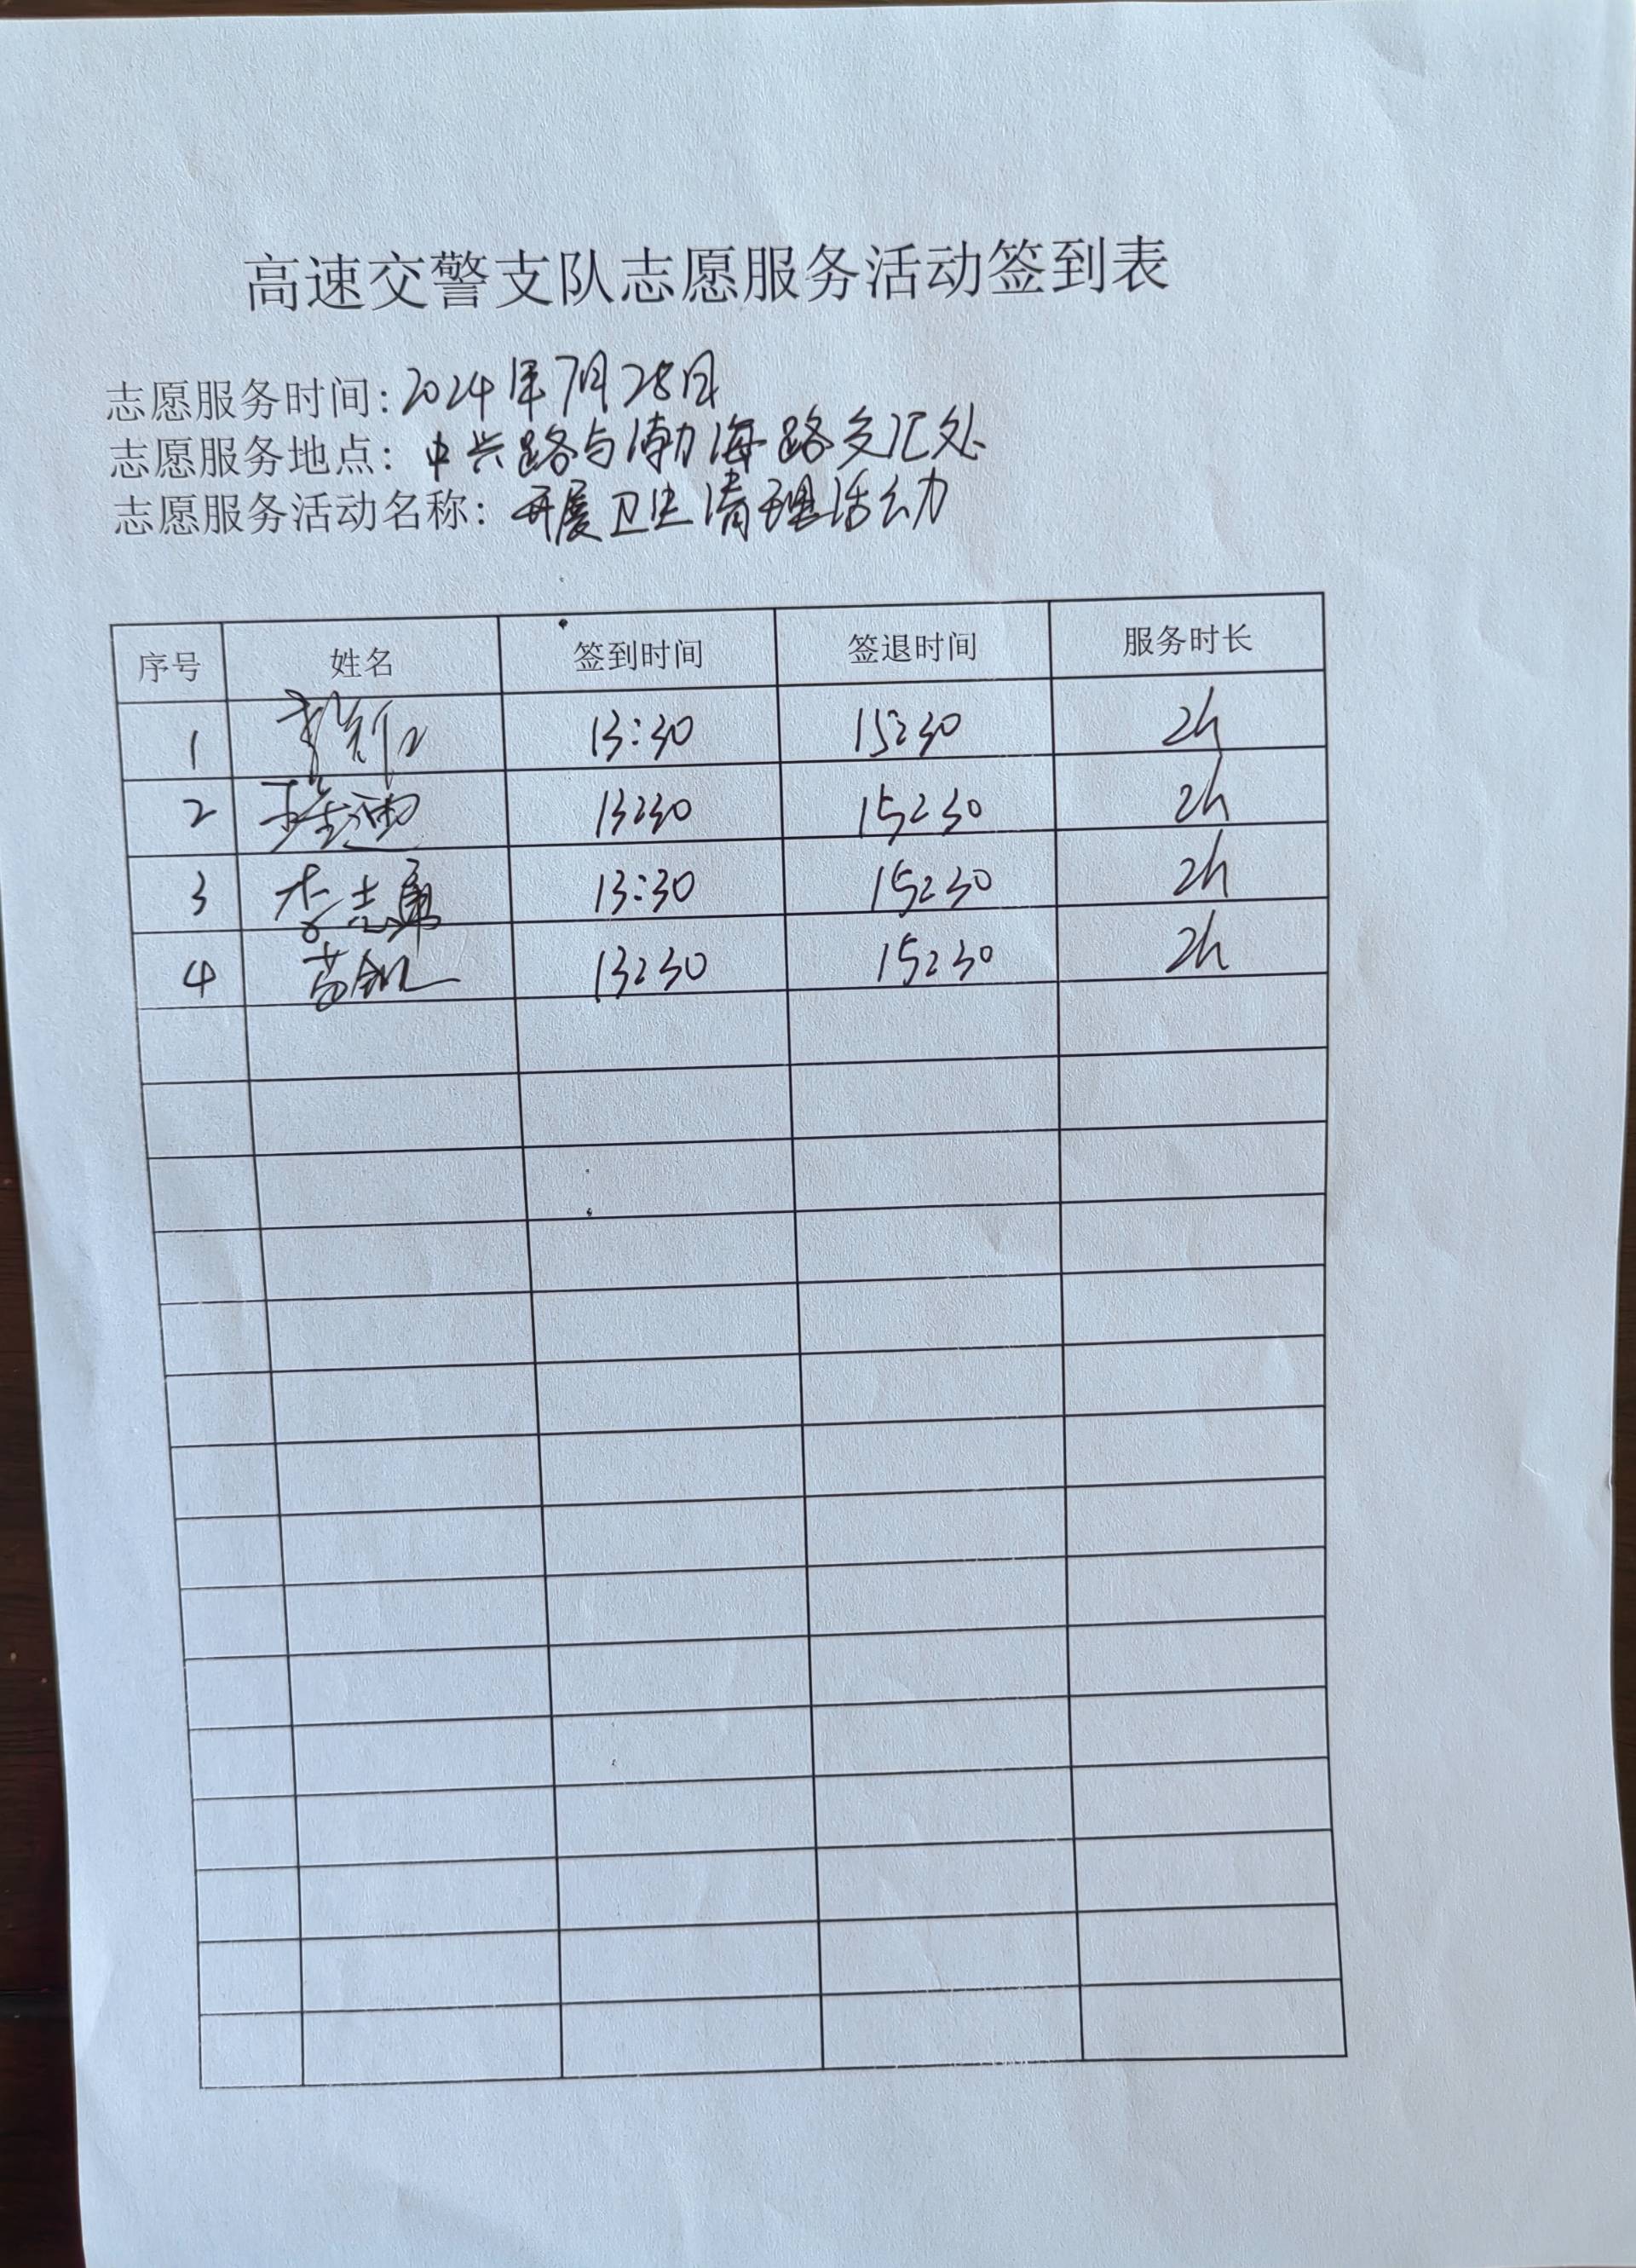 高速交警支队志愿服务活动签到表
志愿服务时间：2024年7月28日
志愿服务地点：中兴路与渤海路交汇处
志愿服务活动名称：开展卫生清理活动
序号 姓名 签到时间 签退时间 服务时长
1 13:30 15:30 2h
2 13:30 15:30 2h
3 李志勇 13:30 15:30 2h
4 13:30 15:30 2h